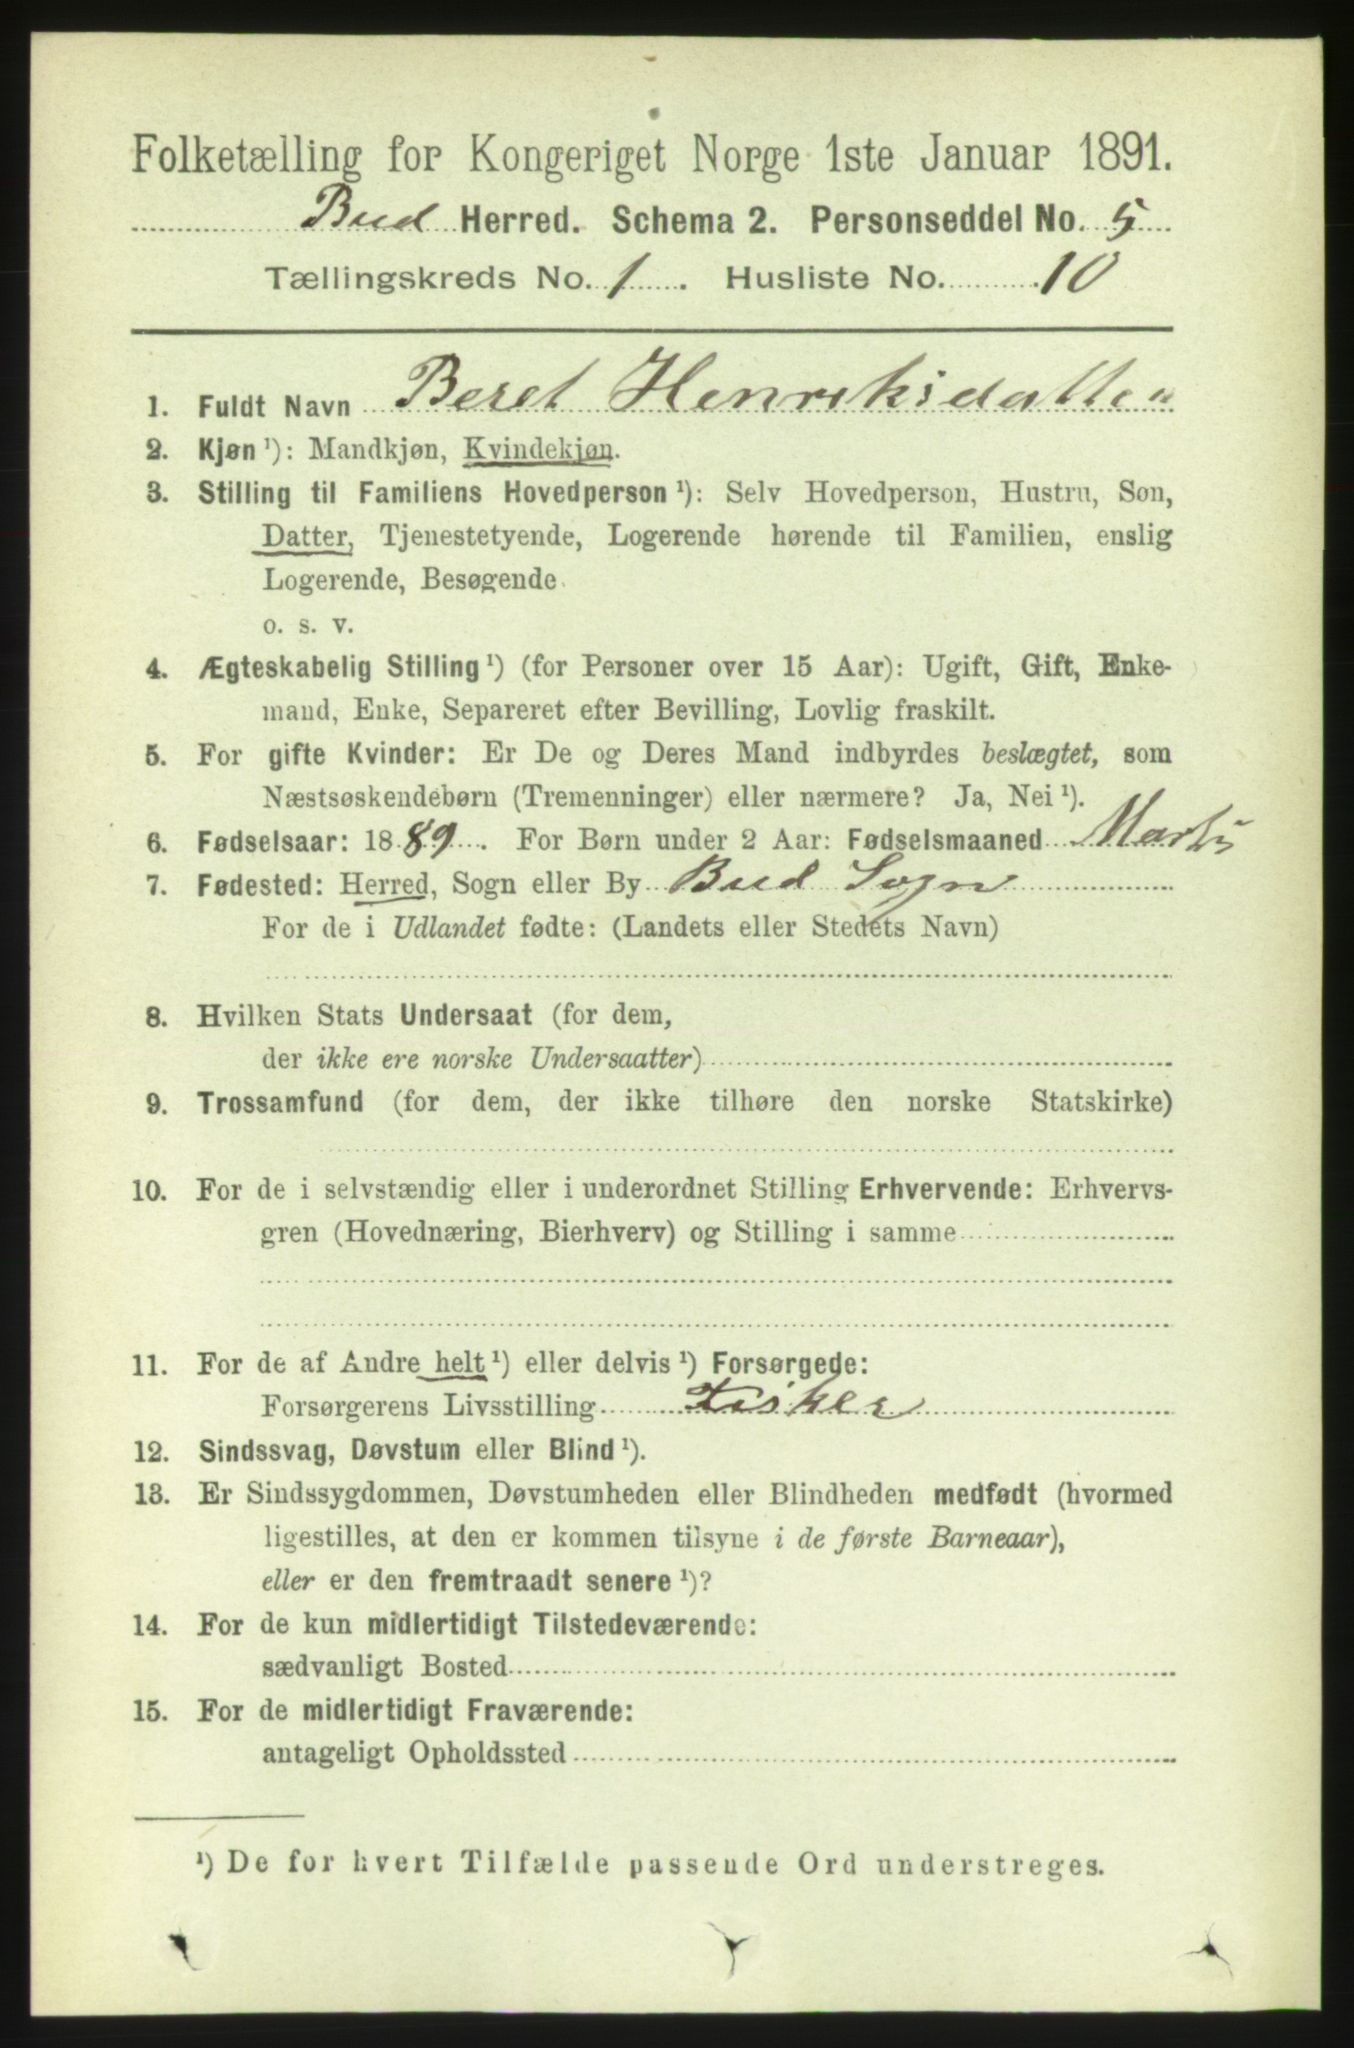 Folketælling for Kongeriget Norge 1ste Januar 1891.
Bud Herred. Schema 2. Personseddel No. 5
Tællingskreds No. 1. Husliste No. 10
1. Fuldt Navn Beret Henriksdatter
2. Kjøn ¹): Mandkjøn, Kvindekjøn.
3. Stilling til Familiens Hovedperson ¹): Selv Hovedperson, Hustru, Søn,
Datter, Tjenestetyende, Logerende hørende til Familien, enslig
Logerende, Besøgende
o. s. v.
4. Ægteskabelig Stilling ¹) (for Personer over 15 Aar): Ugift, Gift, Enke-
mand, Enke, Separeret efter Bevilling, Lovlig fraskilt.
5. For gifte Kvinder: Er De og Deres Mand indbyrdes beslægtet, som
Næstsøskendebørn (Tremenninger) eller nærmere? Ja, Nei ¹).
6. Fødselsaar: 1889. For Børn under 2 Aar: Fødselsmaaned Marts
7. Fødested: Herred, Sogn eller By Bud Sogn
For de i Udlandet fødte: (Landets eller Stedets Navn)
8. Hvilken Stats Undersaat (for dem,
der ikke ere norske Undersaatter)
9. Trossamfund (for dem, der ikke tilhøre den norske Statskirke)
10. For de i selvstændig eller i underordnet Stilling Erhvervende: Erhvervs-
gren (Hovednæring, Bierhverv) og Stilling i samme
11. For de af Andre helt ¹) eller delvis ¹) Forsørgede:
Forsørgerens Livsstilling Fisker
12. Sindssvag, Døvstum eller Blind ¹).
13. Er Sindssygdommen, Døvstumheden eller Blindheden medfødt (hvormed
ligestilles, at den er kommen tilsyne i de første Barneaar),
eller er den fremtraadt senere ¹)?
14. For de kun midlertidigt Tilstedeværende:
sædvanligt Bosted
15. For de midlertidigt Fraværende:
antageligt Opholdssted
¹) De for hvert Tilfælde passende Ord understreges.